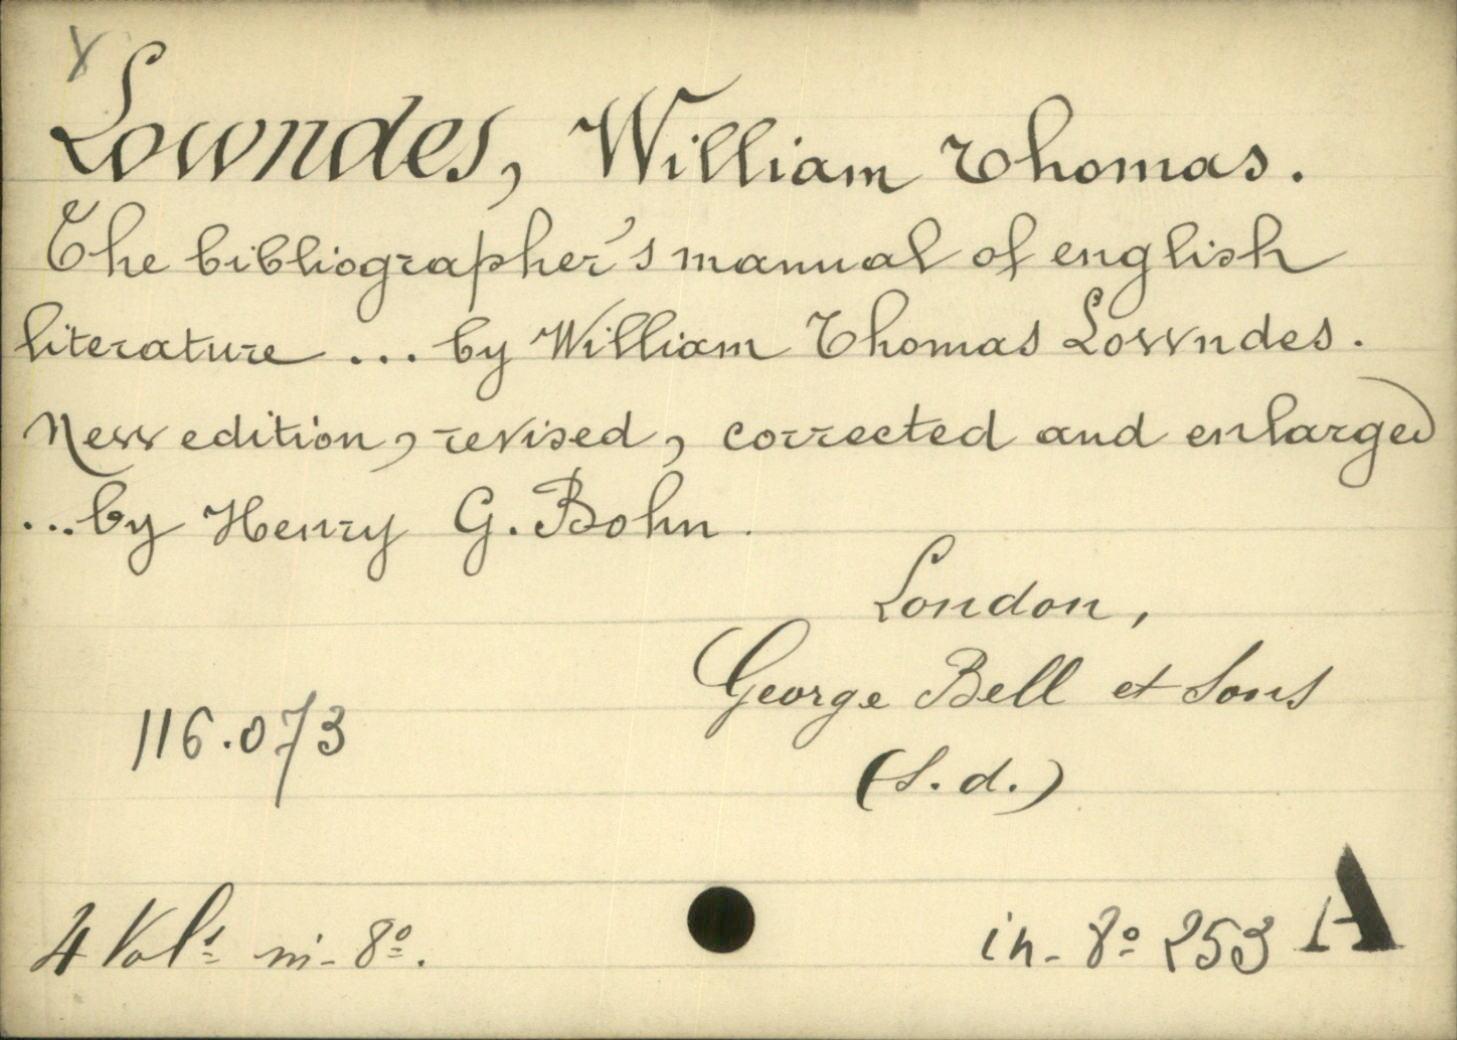 Lowndes, William Thomas.
The bibliographer's manual of english
literature ... by William Thomas Lowndes.
New edition, revised, corrected and enlarged
...by Henry G. Bohn.
London,
George Bell et Sons
116.073
(S. d.)
4 Vols in-8º.
in-8º 253 A